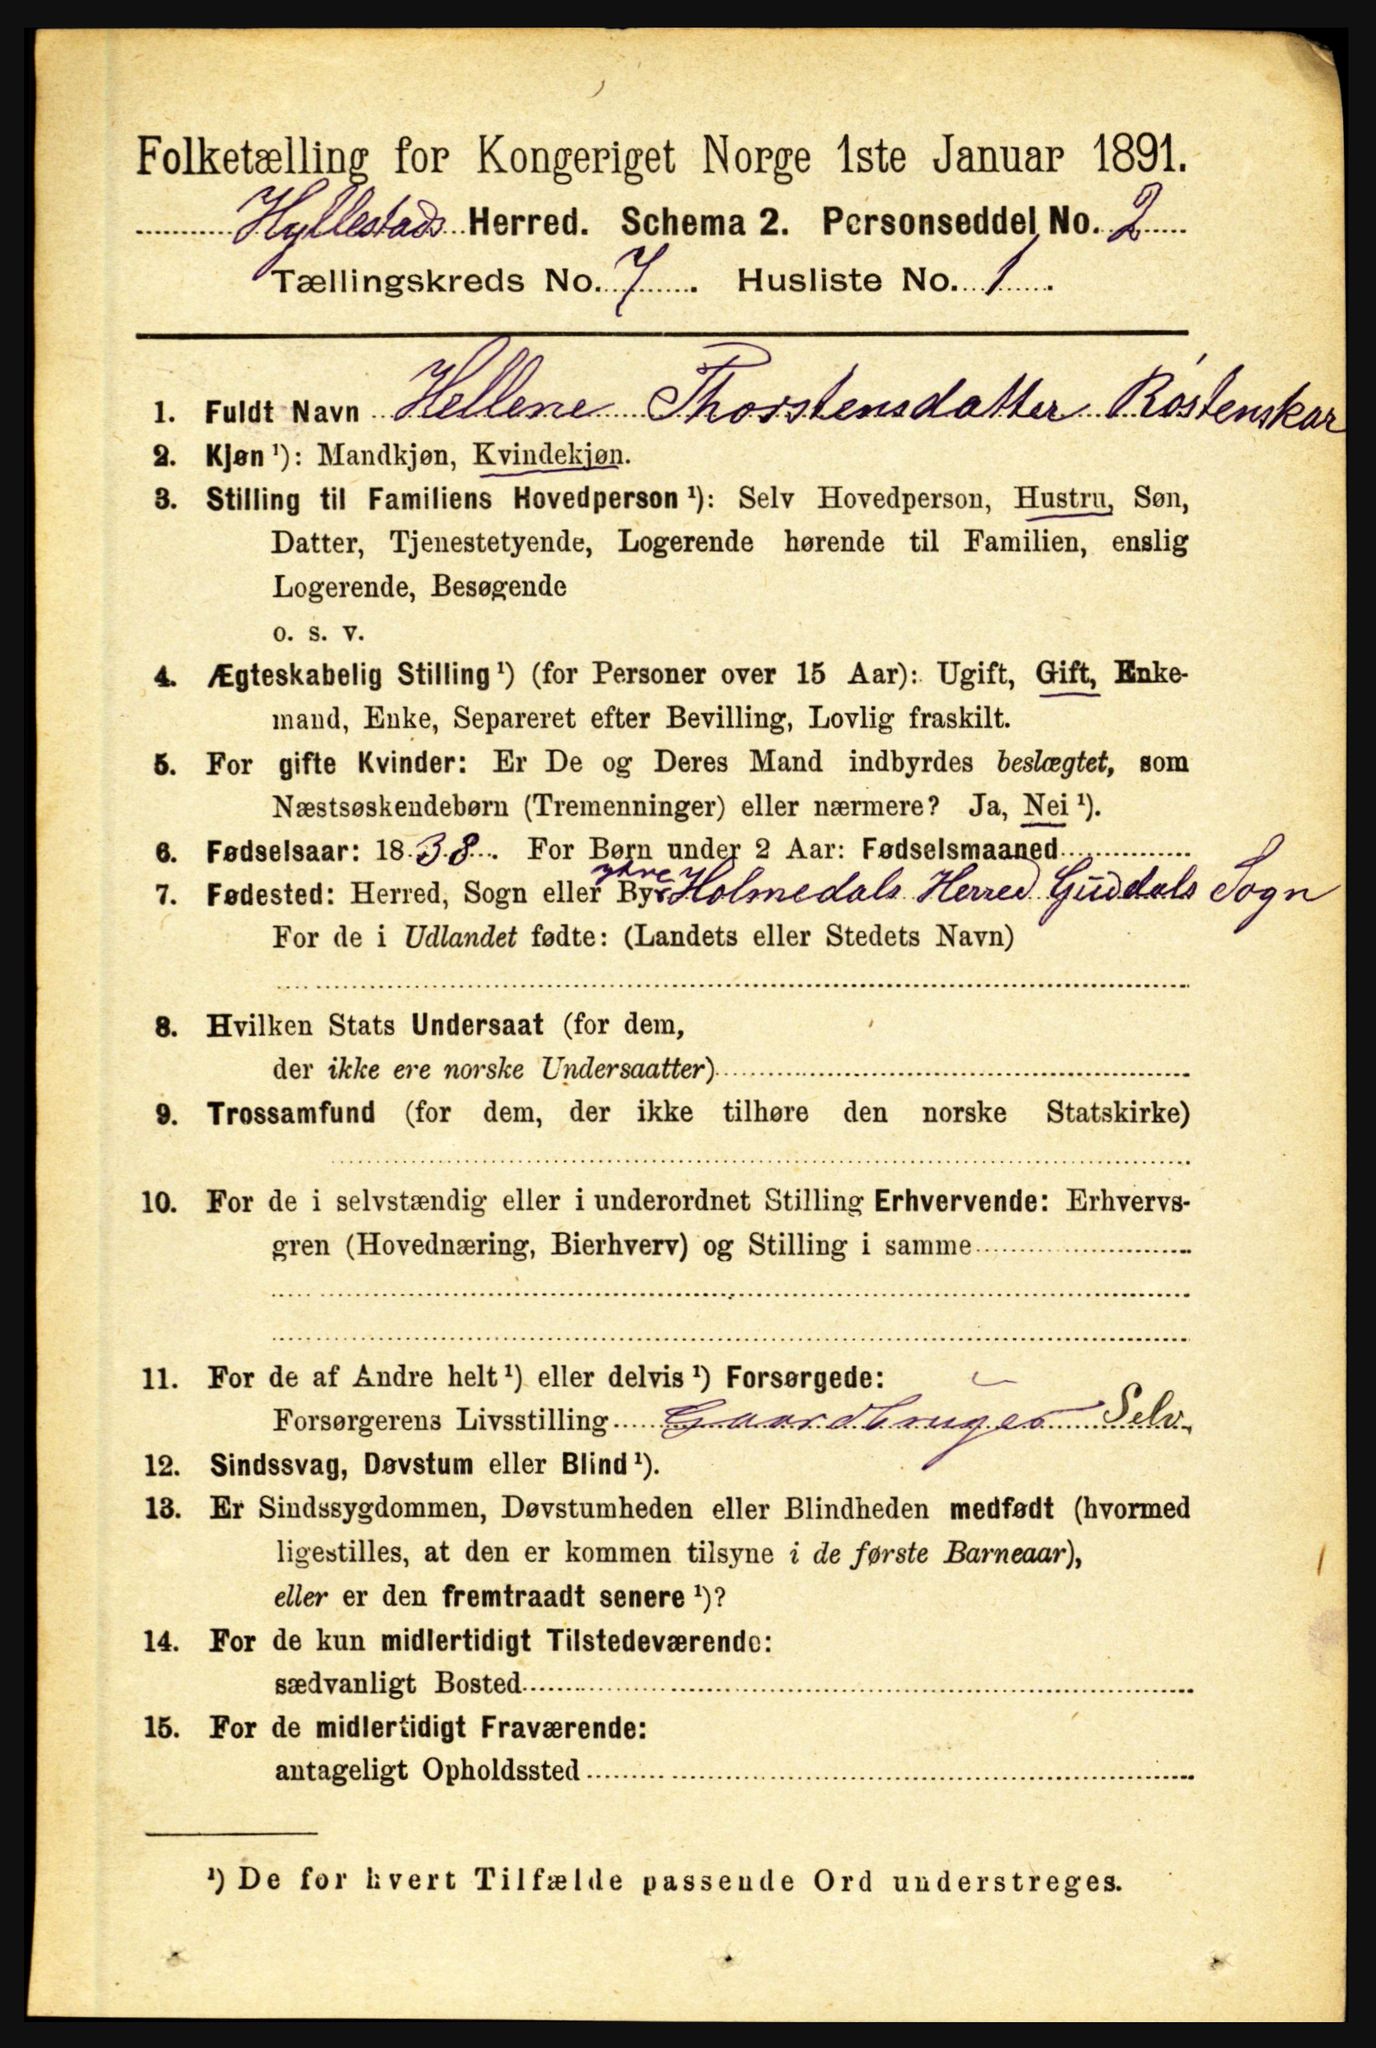 Folketælling for Kongeriget Norge 1ste Januar 1891.
Hyllestads Herred. Schema 2. Personseddel No. 2
Tællingskreds No. 7. Husliste No. 1.
1. Fuldt Navn Hellene Thorstensdatter Röstenskar
2. Kjøn ¹): Mandkjøn, Kvindekjøn.
3. Stilling til Familiens Hovedperson ¹): Selv Hovedperson, Hustru, Søn,
Datter, Tjenestetyende, Logerende hørende til Familien, enslig
Logerende, Besøgende
o. s. v.
4. Ægteskabelig Stilling ¹) (for Personer over 15 Aar): Ugift, Gift, Enke-
mand, Enke, Separeret efter Bevilling, Lovlig fraskilt.
5. For gifte Kvinder: Er De og Deres Mand indbyrdes beslægtet, som
Næstsøskendebørn (Tremenninger) eller nærmere? Ja, Nei ¹).
6. Fødselsaar: 1838. For Børn under 2 Aar: Fødselsmaaned
7. Fødested: Herred, Sogn eller By ytre Holmedals Herred Guddals Sogn
For de i Udlandet fødte: (Landets eller Stedets Navn)
8. Hvilken Stats Undersaat (for dem,
der ikke ere norske Undersaatter)
9. Trossamfund (for dem, der ikke tilhøre den norske Statskirke)
10. For de i selvstændig eller i underordnet Stilling Erhvervende: Erhvervs-
gren (Hovednæring, Bierhverv) og Stilling i samme
11. For de af Andre helt ¹) eller delvis ¹) Forsørgede:
Forsørgerens Livsstilling Gaardbruger Selv
12. Sindssvag, Døvstum eller Blind ¹).
13. Er Sindssygdommen, Døvstumheden eller Blindheden medfødt (hvormed
ligestilles, at den er kommen tilsyne i de første Barneaar),
eller er den fremtraadt senere ¹)?
14. For de kun midlertidigt Tilstedeværende:
sædvanligt Bosted
15. For de midlertidigt Fraværende:
antageligt Opholdssted
¹) De for hvert Tilfælde passende Ord understreges.